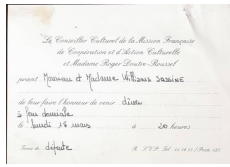 Le Conseiller Culturel de la Mission Française
de Coopération et d'Action Culturelle
et Madame Roger Doutre-Roussel
prient Monsieur et Madame Williams Sassine
de leur faire l'honneur de venir dîner
à son domicile
le lundi 16 mars à 20 heures
Tenue de défaite
R. S.V.P. Tél.